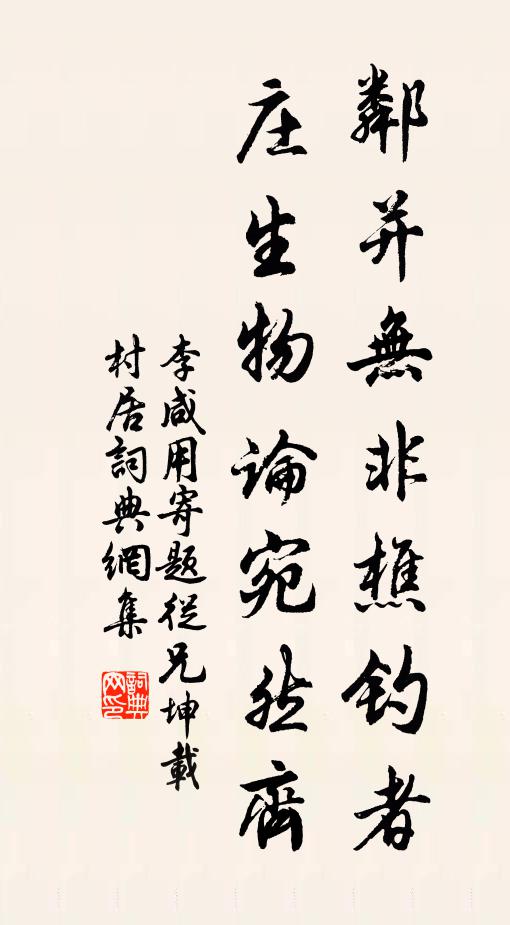 鄰并無非樵釣者
庄生物論宛然齊
李咸用寄題從兄坤載
村居詞典網集
詞典網印